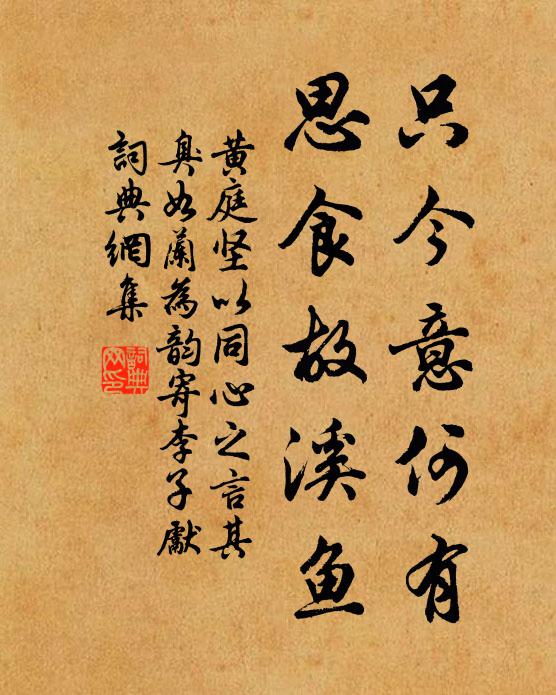 只今意何有
思食故溪鱼
黄庭坚以同心之言其
臭如蘭為韵寄李子獻
詞典網集
詞典
网印